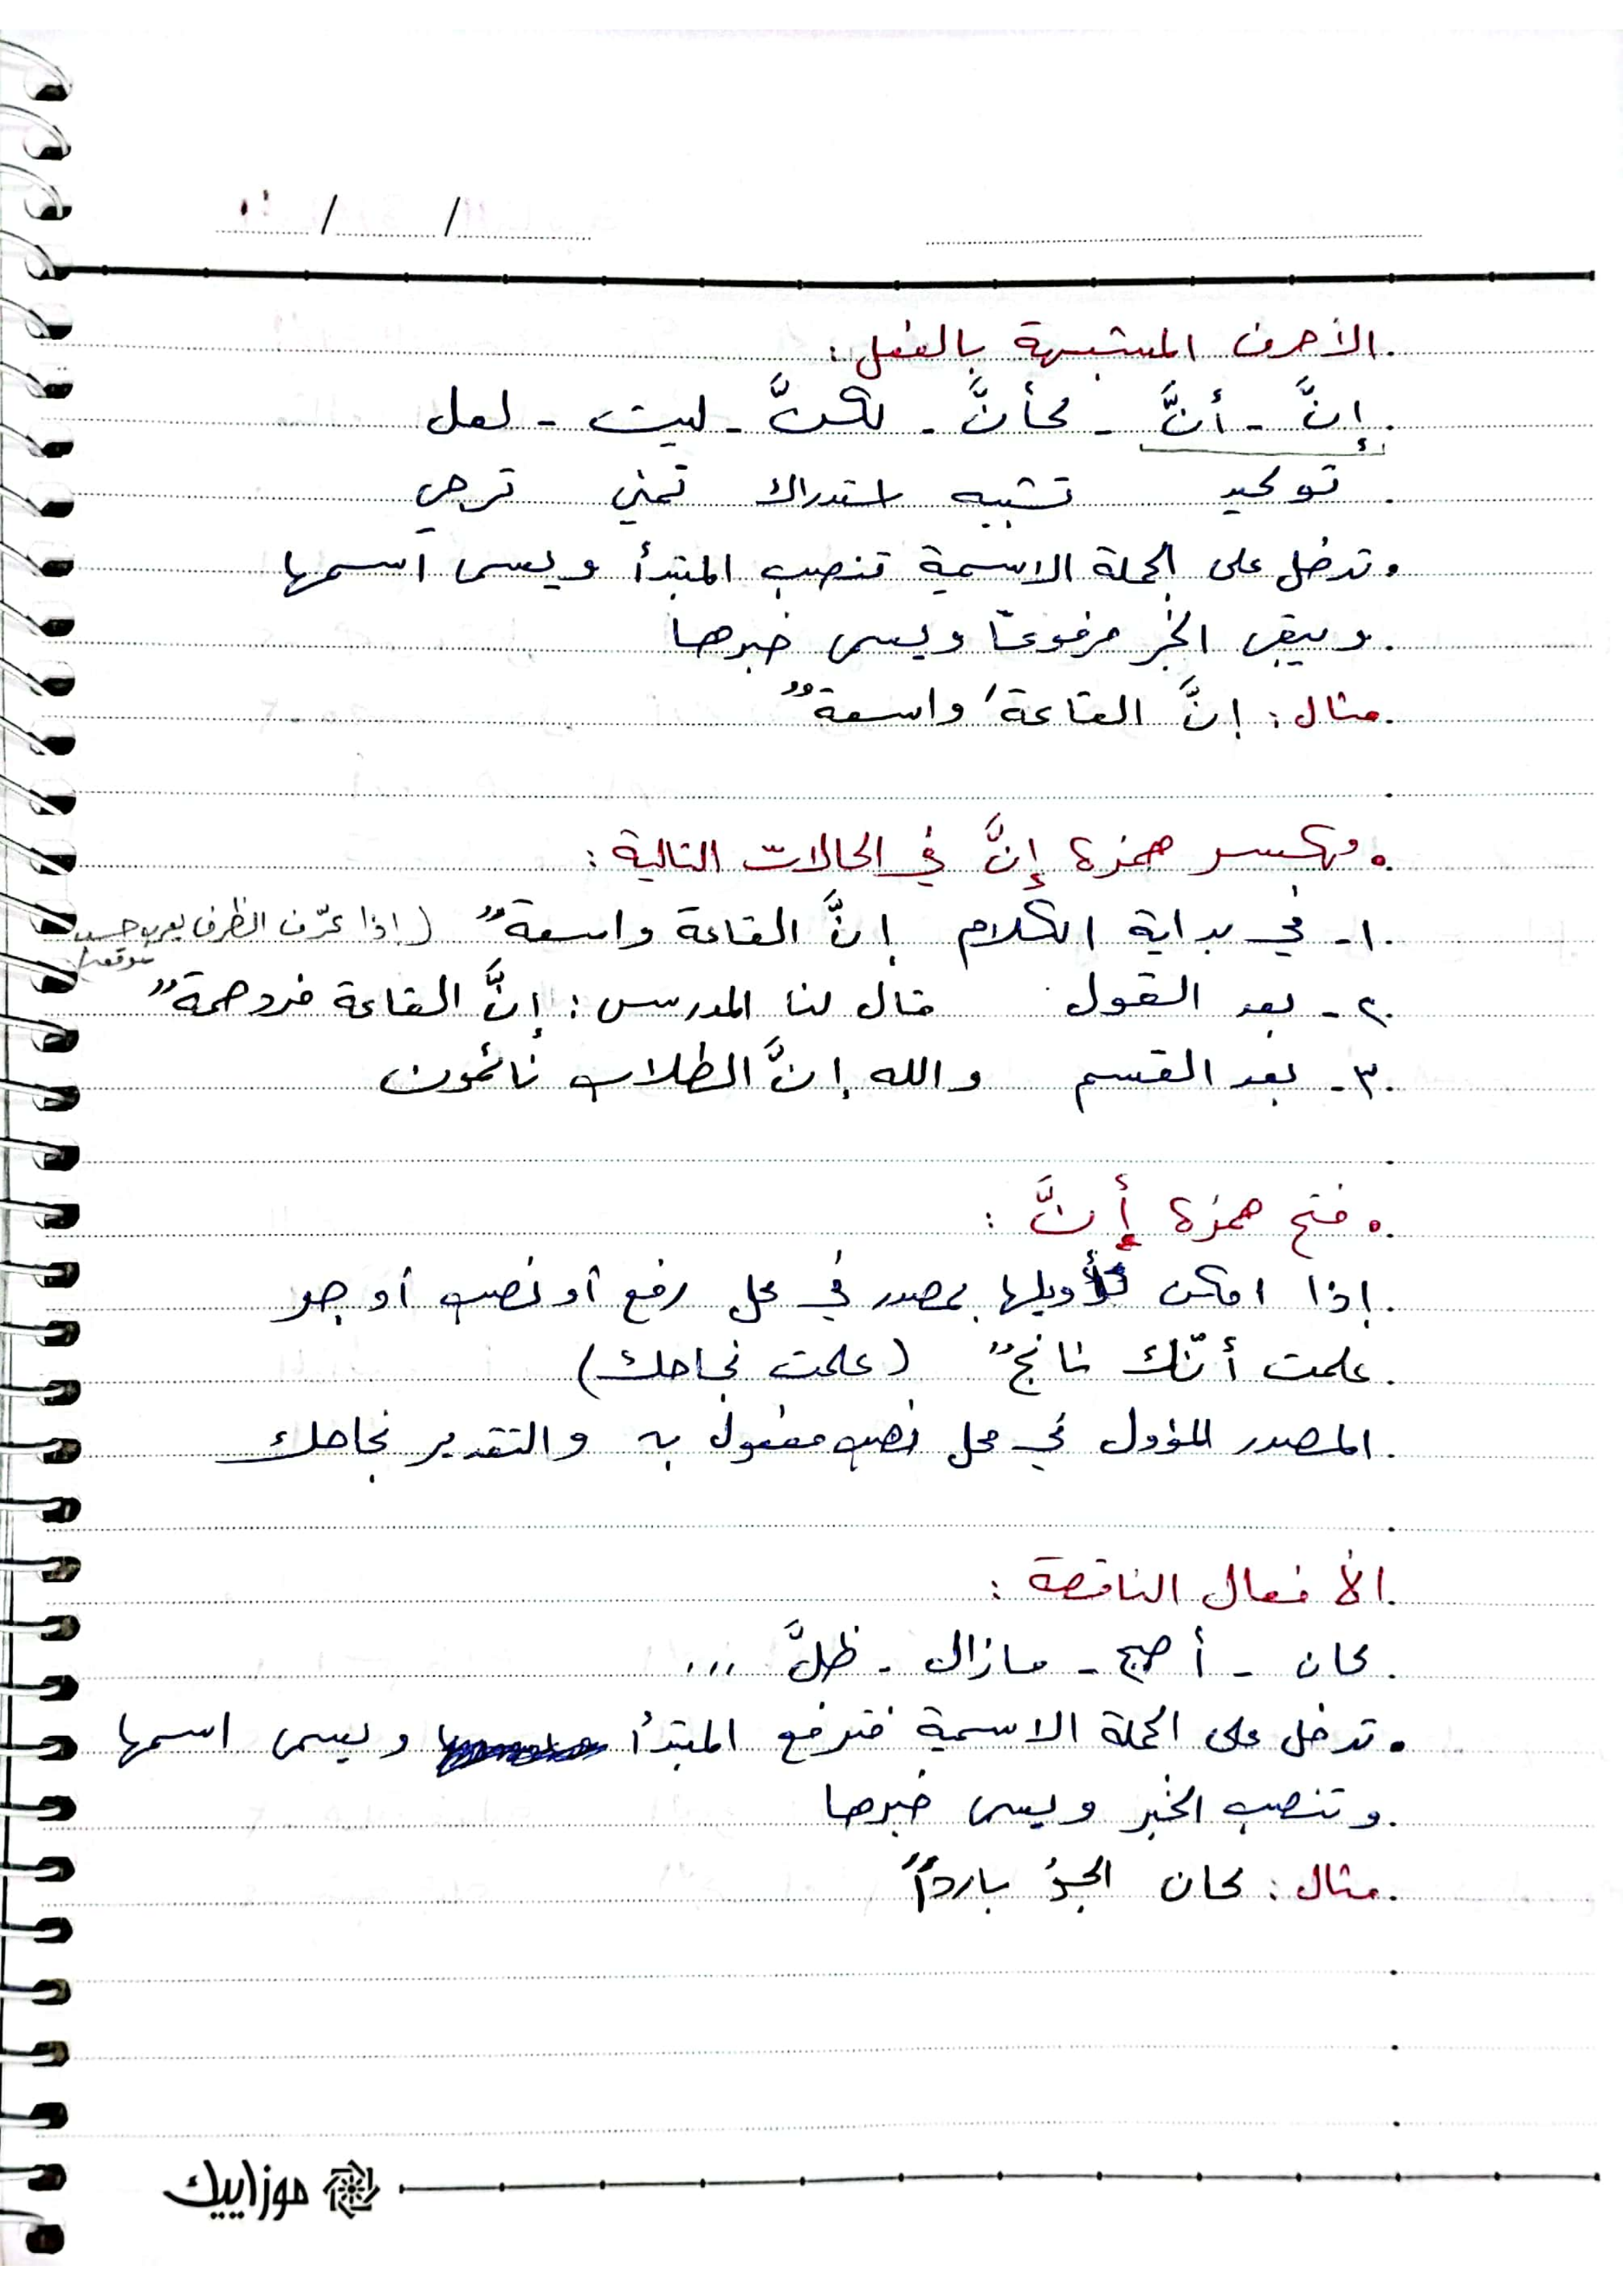 / /
الأحرف المشبهة بالفعل :
إنَّ - أنَّ - كأنَّ - لكنَّ - ليت - لعل
توكيد تشبيه استدراك تمني ترجي
• تدخل على الجملة الاسمية تنصب المبتدأ ويسمى اسمها
ويبقى الخبر مرفوعًا ويسمى خبرها
مثال : إنَّ القاعةَ واسعةٌ
• تكسر همزة إنَّ في الحالات التالية :
١- في بداية الكلام إنَّ القاعة واسعةٌ (إذا عرّف الظرف يعرب حسب موقعه)
٢- بعد القول قال لنا المدرس : إنَّ القاعة مزدحمةٌ
٣- بعد القسم والله إنَّ الطلاب نائمون
• فتح همزة أنَّ :
إذا امكن تأويلها بمصدر في محل رفع أو نصب أو جر
علمت أنّك ناجحٌ (علمت نجاحك)
المصدر المؤول في محل نصب مفعول به والتقدير نجاحك
الأفعال الناقصة :
كان - أصبح - مازال - ظلَّ ...
• تدخل على الجملة الاسمية فترفع المبتدأ ويسمى اسمها
وتنصب الخبر ويسمى خبرها
مثال : كان الجوُ بارداً
موزاييك